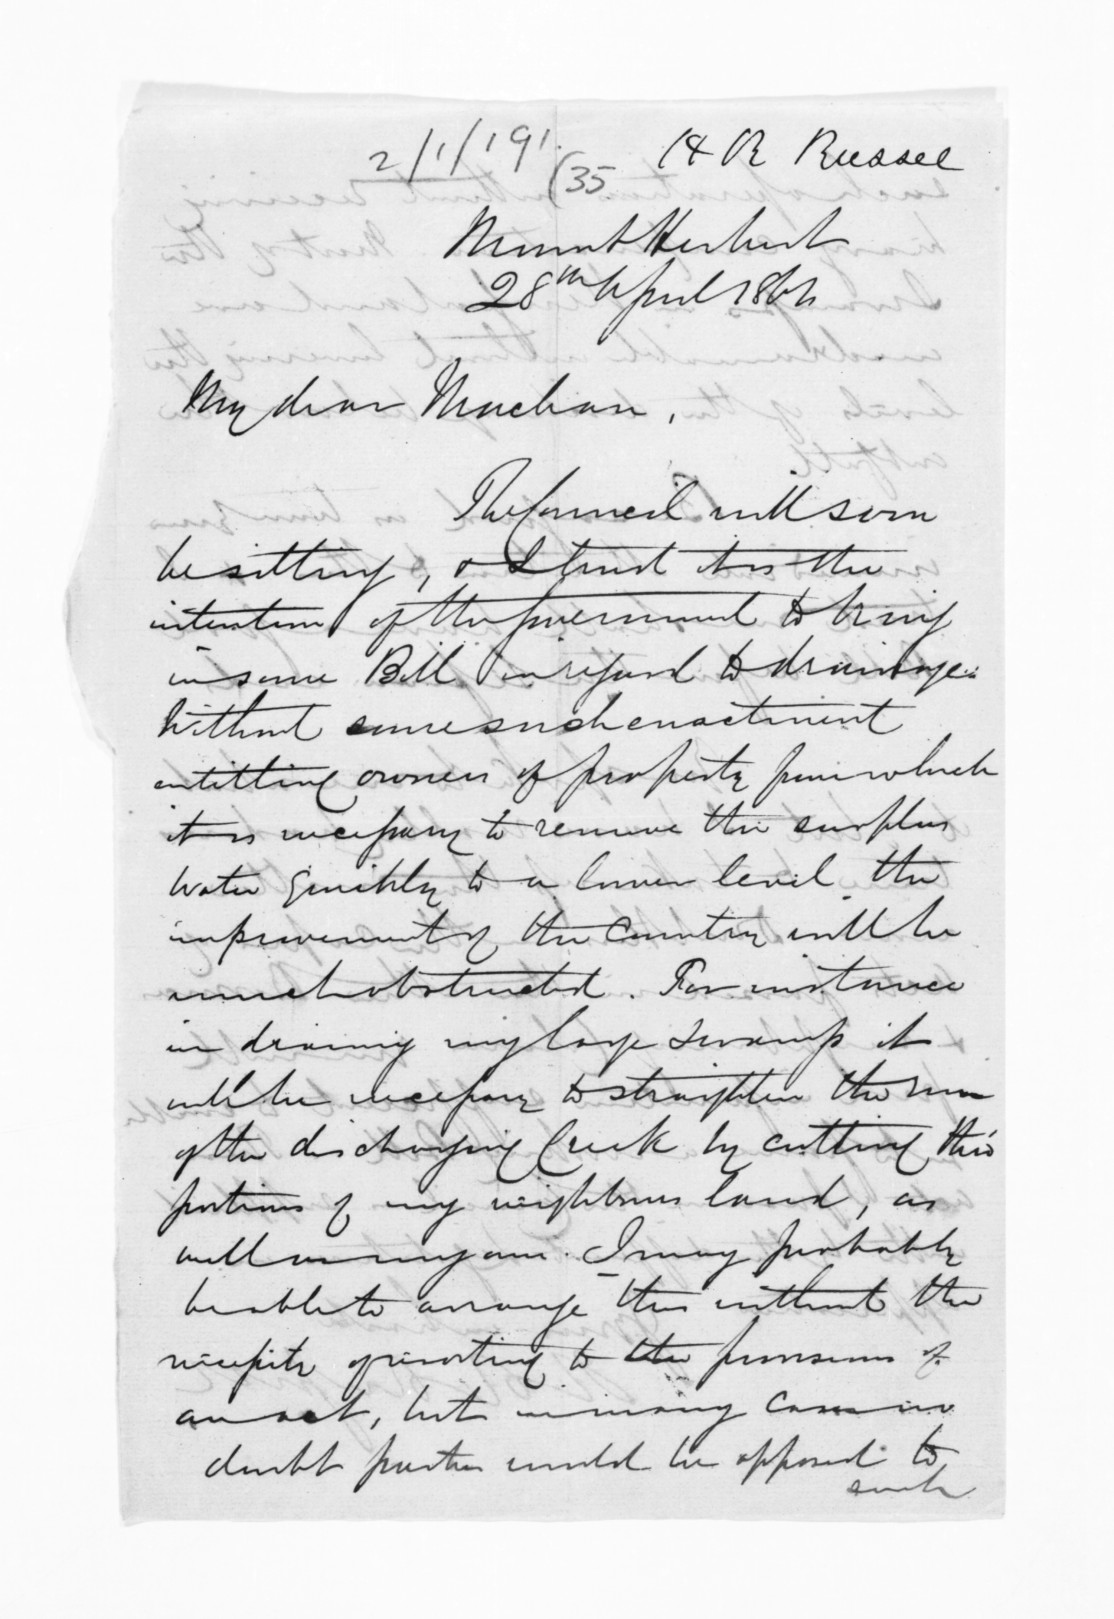 2/1/191. (35
H R Russell
Mount Herbert
28th April 1864
My dear Maclean,
The Council will soon
be sitting, & I trust it is the
intention of the Government to bring
in some Bill in regard to drainage.
Without some such enactment
entitling owners of property from which
it is necessary to remove the surplus
water quickly to a lower level the
improvement of the Country will be
much obstructed. For instance
in draining my large swamp it
will be necessary to straighten the run
of the discharging Creek by cutting thro'
portions of my neighbours land, as
well as my own. I may probably
be able to arrange this without the
necessity of resorting to the provisions of
an act, but in many cases no
doubt parties would be opposed to
such